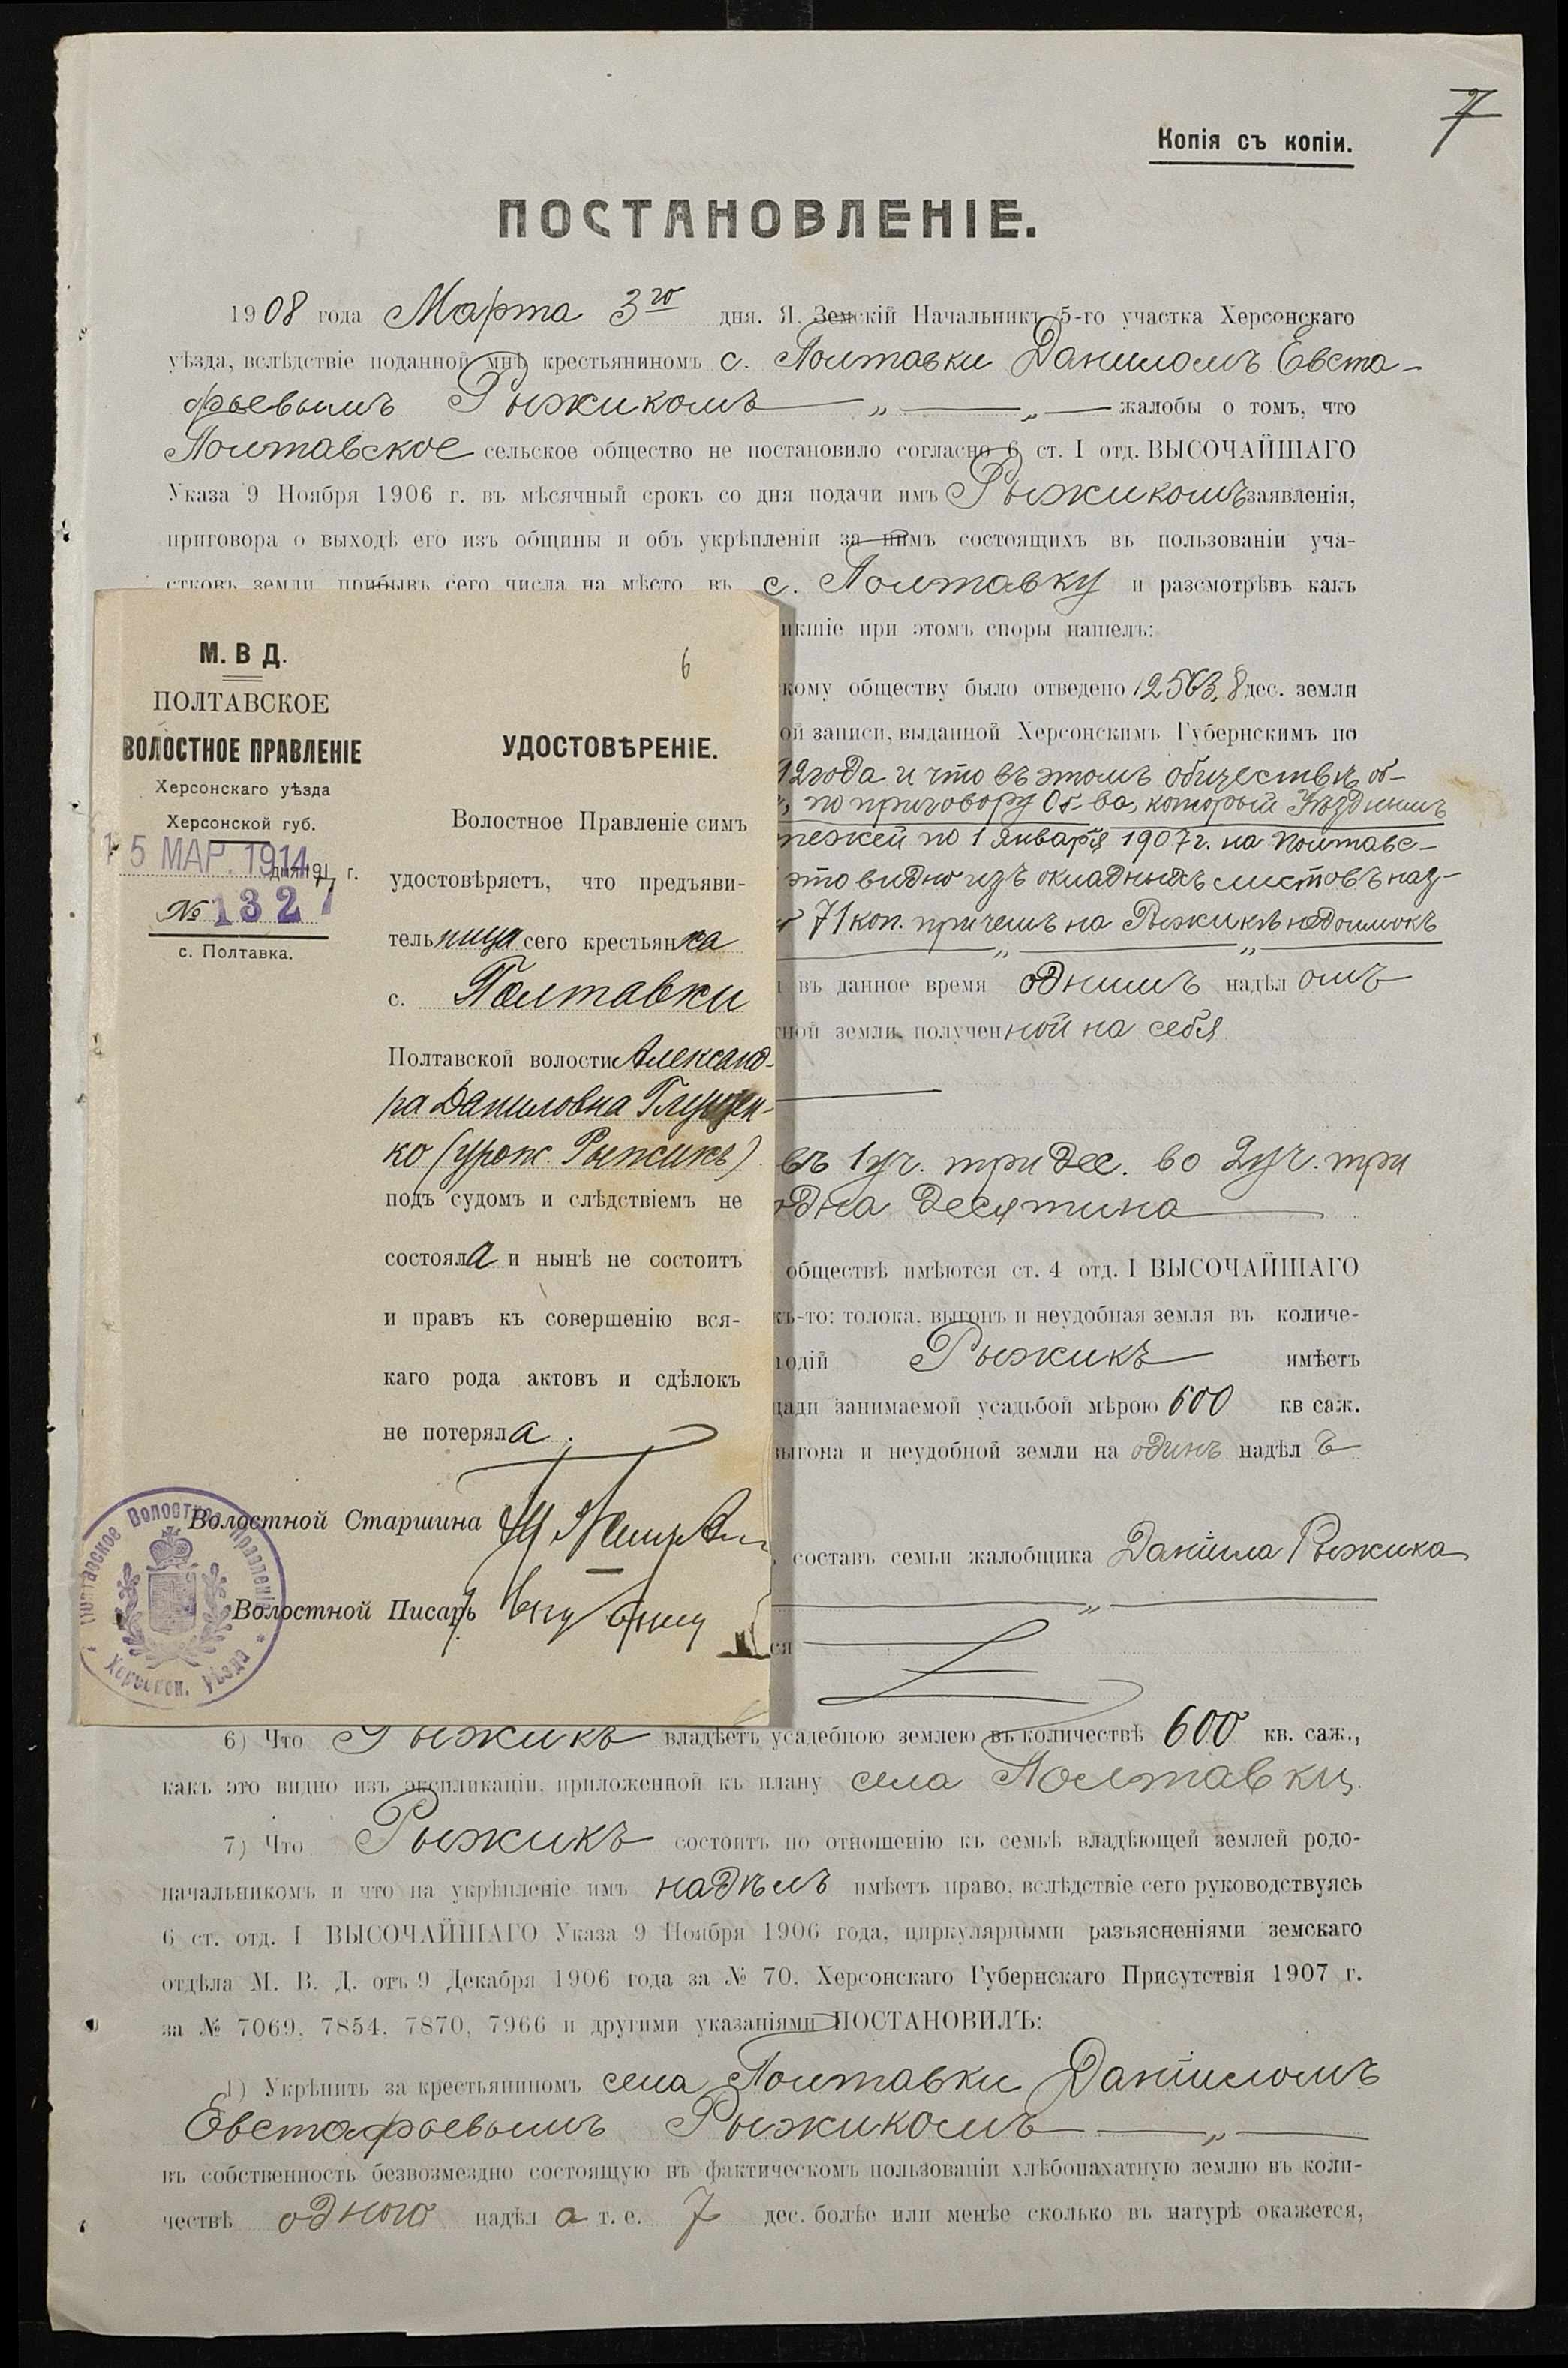 7
Копія съ копіи.
ПОСТАНОВЛЕНІЕ.
1908 года Марта 3го дня. Я. Земскій Начальникъ 5-го участка Херсонскаго
уѣзда, вслѣдствіе поданной мнѣ крестьяниномъ с. Полтавки Даниломъ Евста-
фьевымъ Рыжикомъ — „ — „ — жалобы о томъ, что
Полтавское сельское общество не постановило согласно 6 ст. I отд. ВЫСОЧАЙШАГО
Указа 9 Ноября 1906 г. въ мѣсячный срокъ со дня подачи имъ Рыжикомъ заявленія,
приговора о выходѣ его изъ общины и объ укрѣпленіи за нимъ состоящихъ въ пользованіи уча-
стковъ земли, прибывъ сего числа на мѣсто въ с. Полтавку и разсмотрѣвъ какъ
икшіе при этомъ споры нашелъ:
кому обществу было отведено 12563,8 дес. земли
ой записи, выданной Херсонскимъ Губернскимъ по
92 года и что въ этомъ обществѣ об-
, по приговору Об-ва, который Уѣзднымъ
тежей по 1 Января 1907 г. на Полтавс-
это видно изъ окладныхъ листовъ наз-
71 коп. причемъ на Рыжикѣ недоимокъ
„ — „
въ данное время однимъ надѣломъ
ной земли, полученной на себя
въ 1 уч. три дес. во 2 уч. три
одна десятина
обществѣ имѣются ст. 4 отд. I ВЫСОЧАЙШАГО
къ-то: толока, выгонъ и неудобная земля въ количе-
одій Рыжикъ имѣетъ
щади занимаемой усадьбой мѣрою 600 кв саж.
выгона и неудобной земли на одинъ надѣлъ
составъ семьи жалобщика Даніила Рыжика
„
ся
6) Что Рыжикъ владѣетъ усадебною землею въ количествѣ 600 кв. саж.,
какъ это видно изъ экспликаціи, приложенной къ плану села Полтавки.
7) Что Рыжикъ состоитъ по отношенію къ семьѣ владѣющей землей родо-
начальникомъ и что на укрѣпленіе имъ надѣлъ имѣетъ право, вслѣдствіе сего руководствуясь
6 ст. отд. I ВЫСОЧАЙШАГО Указа 9 Ноября 1906 года, циркулярными разъясненіями земскаго
отдѣла М. В. Д. отъ 9 Декабря 1906 года за № 70, Херсонскаго Губернскаго Присутствія 1907 г.
за № 7069, 7854, 7870, 7966 и другими указаніями ПОСТАНОВИЛЪ:
1) Укрѣпить за крестьяниномъ села Полтавки Даніиломъ
Евстафьевымъ Рыжикомъ — „ —
въ собственность безвозмездно состоящую въ фактическомъ пользованіи хлѣбопахатную землю въ коли-
чествѣ одного надѣла т. е. 7 дес. болѣе или менѣе сколько въ натурѣ окажется,
6
М. В Д.
ПОЛТАВСКОЕ
ВОЛОСТНОЕ ПРАВЛЕНІЕ
Херсонскаго уѣзда
Херсонской губ.
15 МАР. 1914
дня 191 г.
№ 1327
с. Полтавка.
УДОСТОВѢРЕНІЕ.
Волостное Правленіе симъ
удостовѣряетъ, что предъяви-
тельница сего крестьянка
с. Полтавки
Полтавской волости Александ-
ра Даниловна Глущен-
ко (урож. Рыжикъ)
подъ судомъ и слѣдствіемъ не
состояла и нынѣ не состоитъ
и правъ къ совершенію вся-
каго рода актовъ и сдѣлокъ
не потеряла.
Волостной Старшина
Волостной Писарь
Полтавское Волостное Правленіе
Херсон. уѣзда